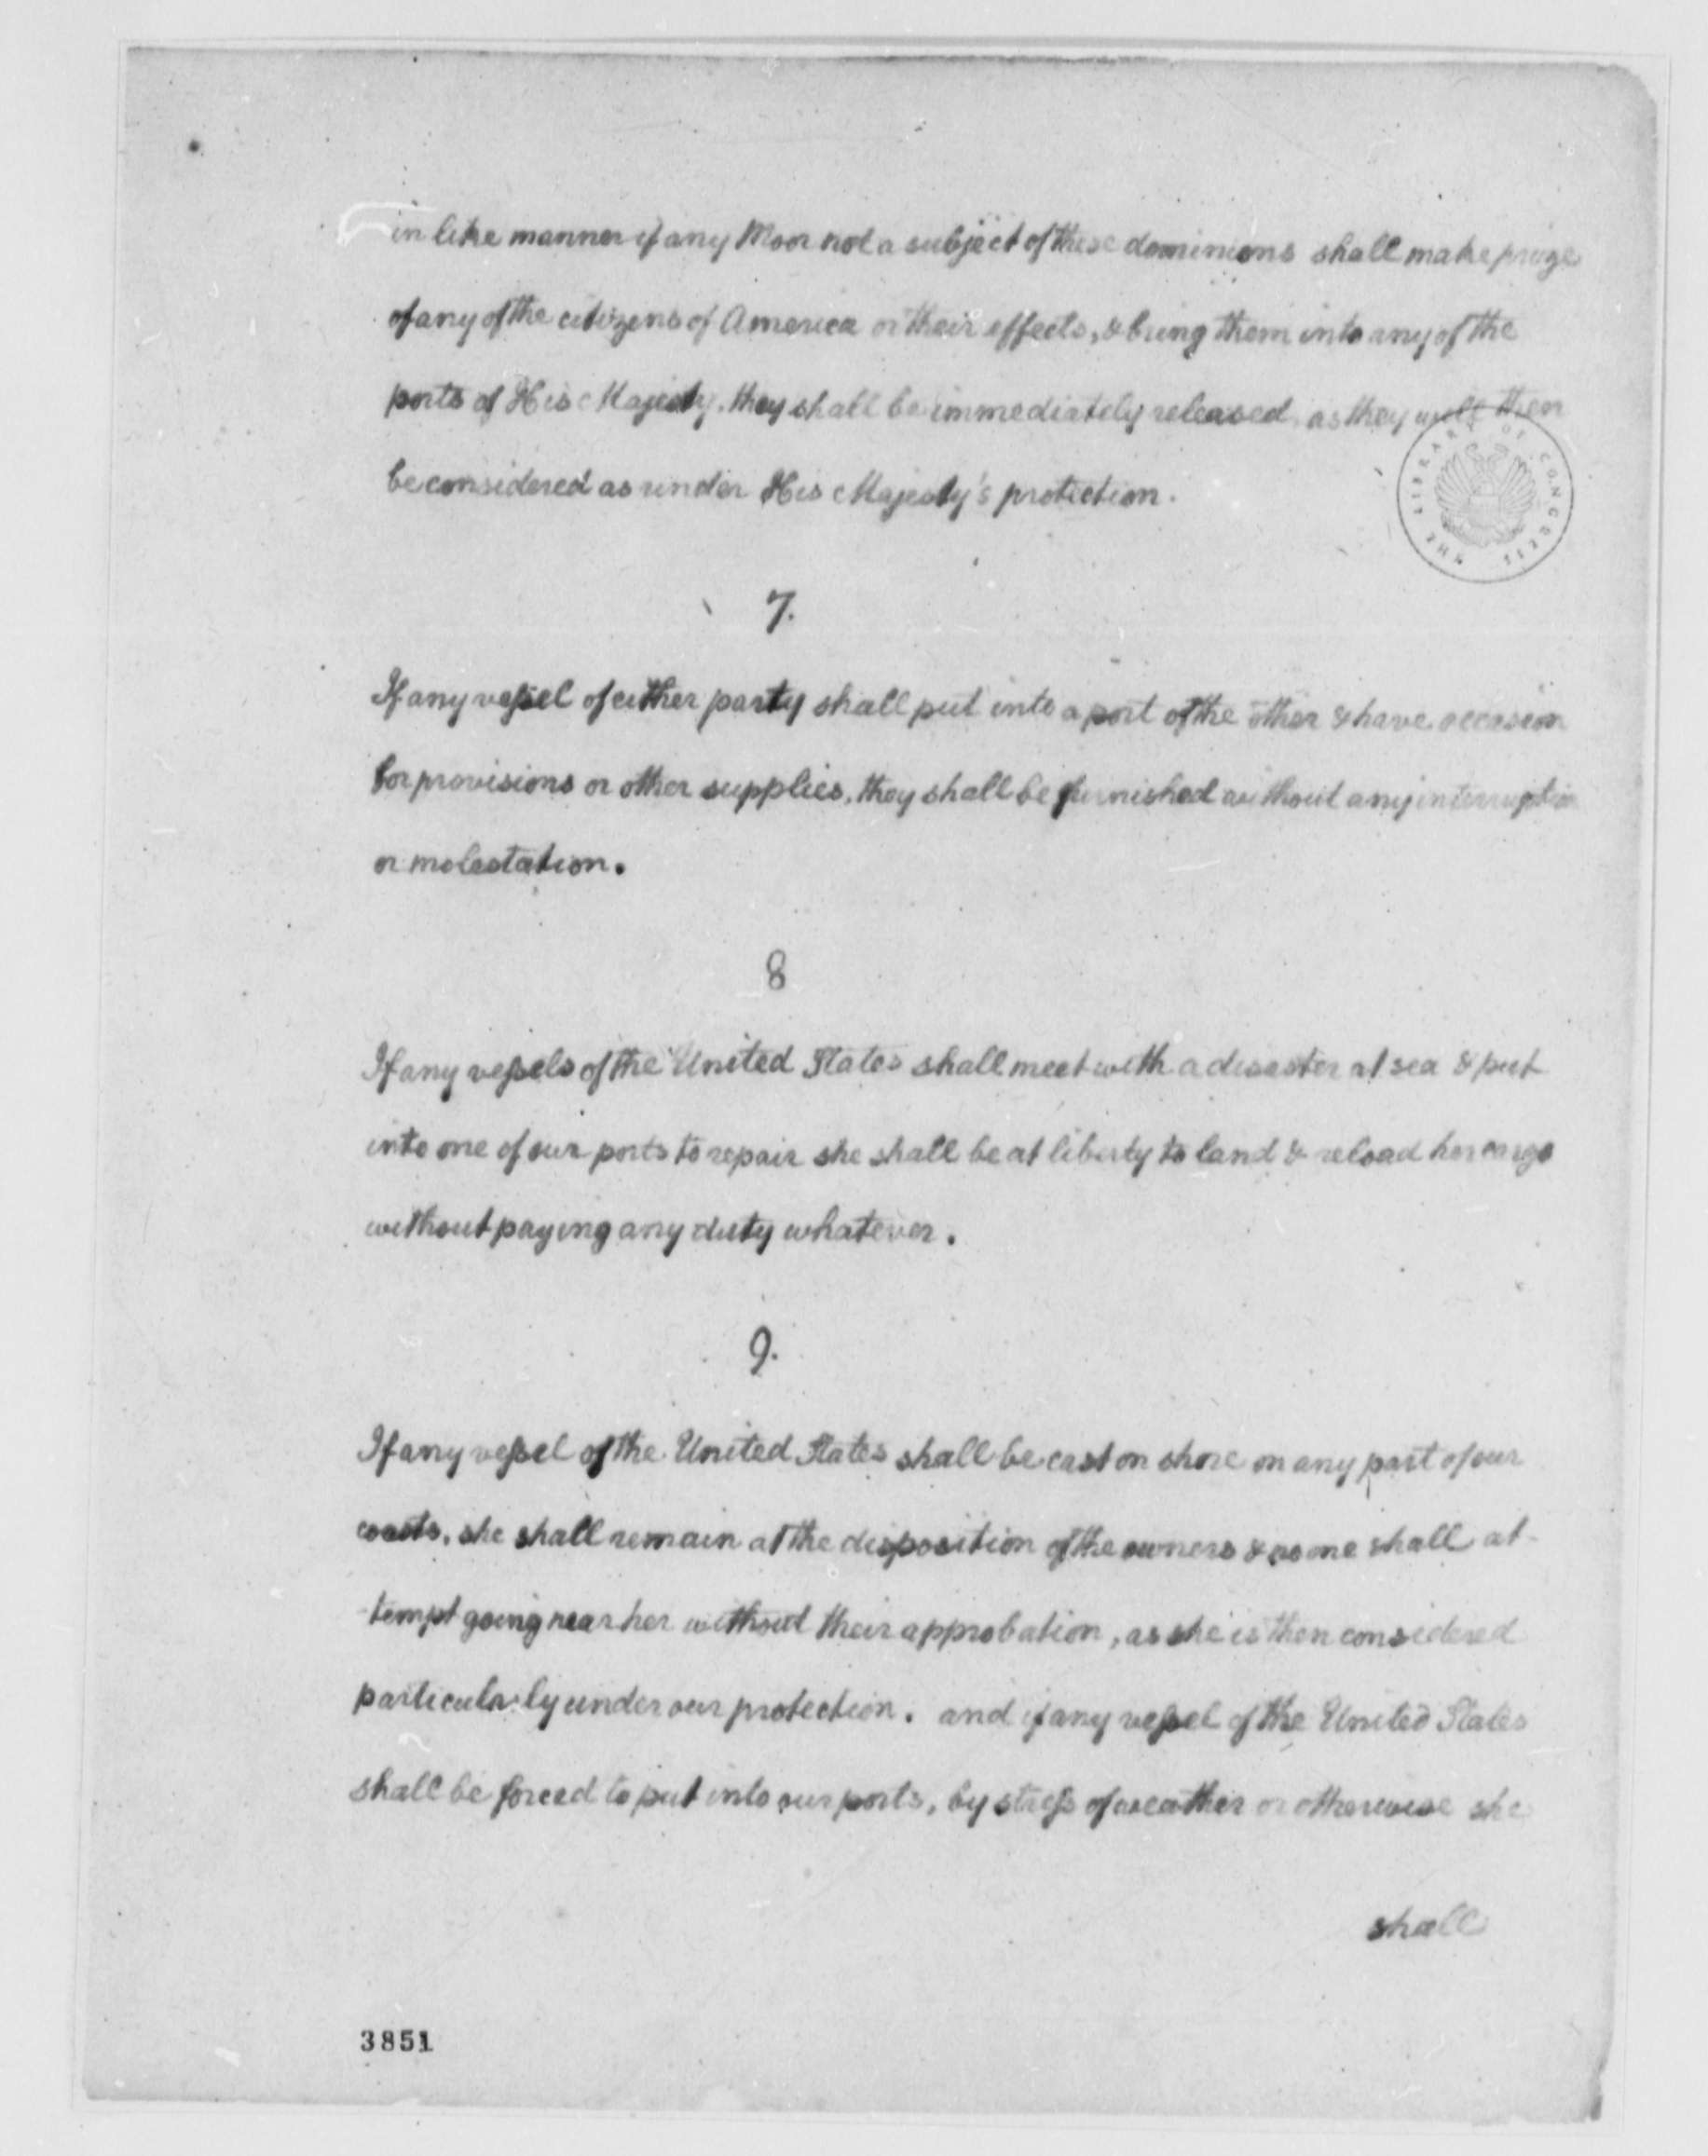 in like manner if any Moor not a subject of these dominions shall make prize
of any of the citizens of America or their effects, & bring them into any of the
ports of His Majesty, they shall be immediately released, as they will then
be considered as under His Majesty's protection.
THE LIBRARY OF CONGRESS
7.
If any vessel of either party shall put into a port of the other & have occasion
for provisions or other supplies, they shall be furnished without any interruption
or molestation.
8
If any vessels of the United States shall meet with a disaster at sea & put
into one of our ports to repair she shall be at liberty to land & reload her cargo
without paying any duty whatever.
9.
If any vessel of the United States shall be cast on shore on any part of our
coasts, she shall remain at the disposition of the owners & no one shall at-
-tempt going near her without their approbation, as she is then considered
particularly under our protection. and if any vessel of the United States
shall be forced to put into our ports, by stress of weather or otherwise she
shall
3851